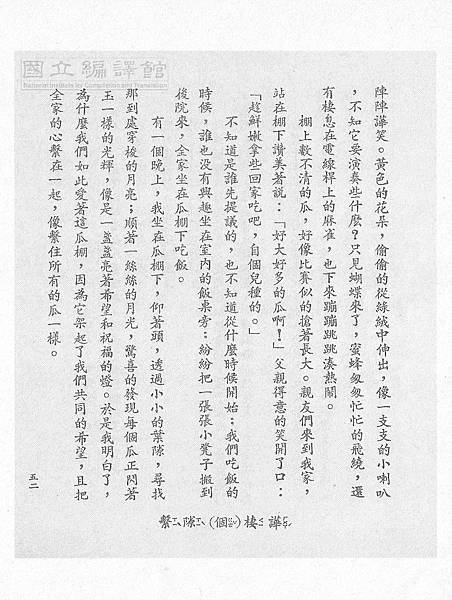 國立編譯館
National Institute for Compilation and Translation
陣陣譁笑。黃色的花朵，偷偷的從綠絨中伸出，像一支支的小喇叭
，不知它要演奏些什麼？只見蝴蝶來了，蜜蜂匆匆忙忙的飛繞，還
有棲息在電線桿上的麻雀，也下來蹦蹦跳跳湊熱鬧。
棚上數不清的瓜，好像比賽似的搶著長大。親友們來到我家，
站在棚下讚美著說：「好大好多的瓜啊！」父親得意的笑開了口：
「趁鮮嫩拿些回家吃吧，自個兒種的。」
不知道是誰先提議的，也不知道從什麼時候開始：我們吃飯的
時候，誰也沒有興趣坐在室內的飯桌旁；紛紛把一張張小凳子搬到
後院來，全家坐在瓜棚下吃飯。
有一個晚上，我坐在瓜棚下，仰著頭，透過小小的葉隙，尋找
那到處穿梭的月亮；順著一絲絲的月光，驚喜的發現每個瓜正閃著
玉一樣的光輝，像是一盞盞亮著希望和祝福的燈。於是我明白了，
為什麼我們如此愛著這瓜棚，因為它架起了我們共同的希望，且把
全家的心繫在一起，像繫住所有的瓜一樣。
五二
譁ㄏㄨㄚˊ棲ㄑㄧ（個ㄍㄜˇ）隙ㄒㄧˋ繫ㄒㄧˋ